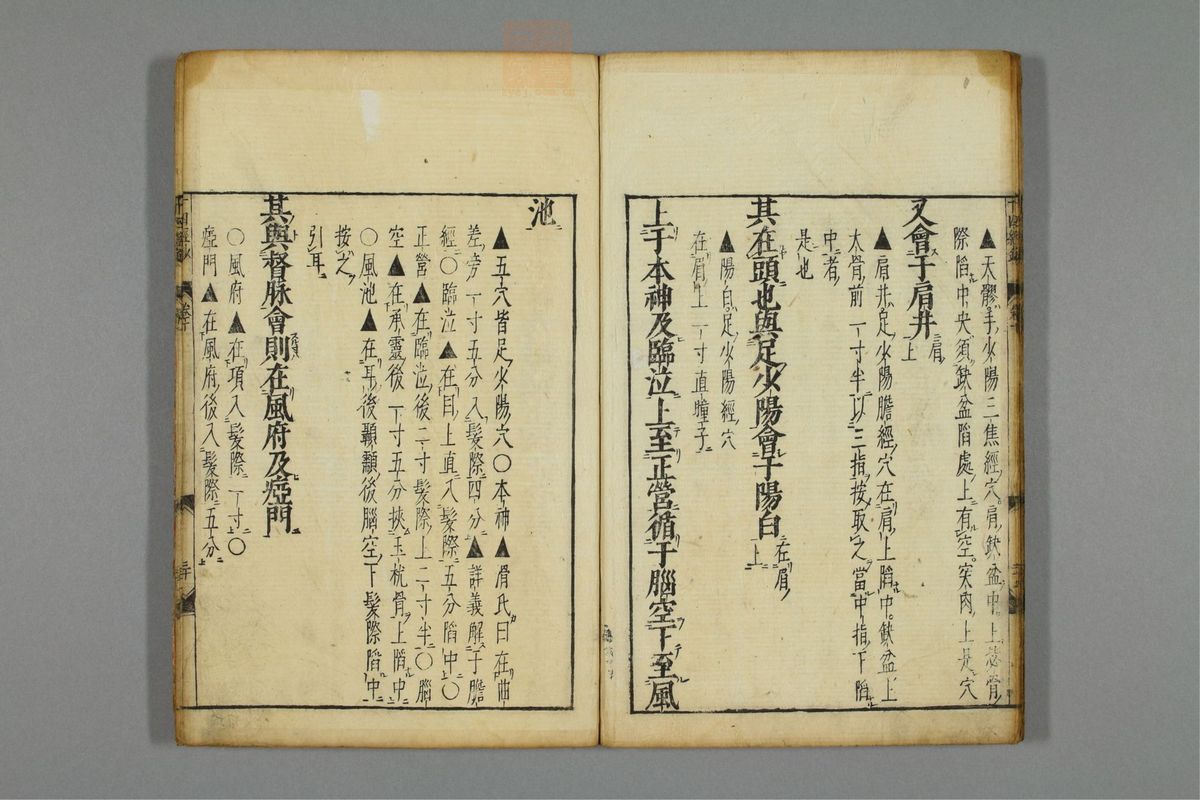 ▲天髎手少陽三焦經穴肩缺盆中上毖骨
際陷中央須缺盆陷處上有空突肉上是穴
又會于肩井肩上
▲肩井足少陽膽經穴在肩上陷中缺盆上
太骨前一寸半以三指按取之當中指下陷
中者
是也
其在頭也與足少陽會于陽白在眉上
▲陽白足少陽經穴
在眉上一寸直瞳子
上于本神及臨泣上至正營循于腦空下至風
池
▲五穴皆足少陽穴〇本神▲滑氏曰在曲
差旁一寸五分入髮際四分▲詳義解于膽
經〇臨泣▲在目上直入髮際五分陷中〇
正營▲在臨泣後二寸髮際上二寸半〇腦
空▲在承靈後一寸五分挾玉枕骨上陷中
〇風池▲在耳後顳顬後腦空下髮際陷中
按之
引耳
其與督脉會則在風府及瘂門
〇風府▲在項入髮際一寸〇
瘂門▲在風府後入髮際五分